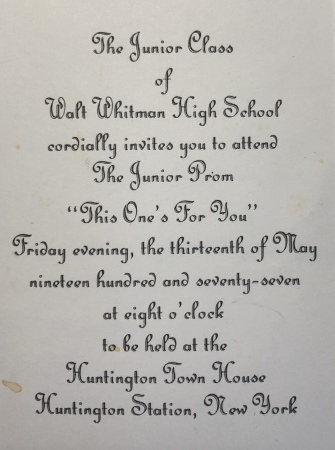 The Junior Class
of
Walt Whitman High School
cordially invites you to attend
The Junior Prom
“This One’s For You”
Friday evening, the thirteenth of May
nineteen hundred and seventy-seven
at eight o’clock
to be held at the
Huntington Town House
Huntington Station, New York